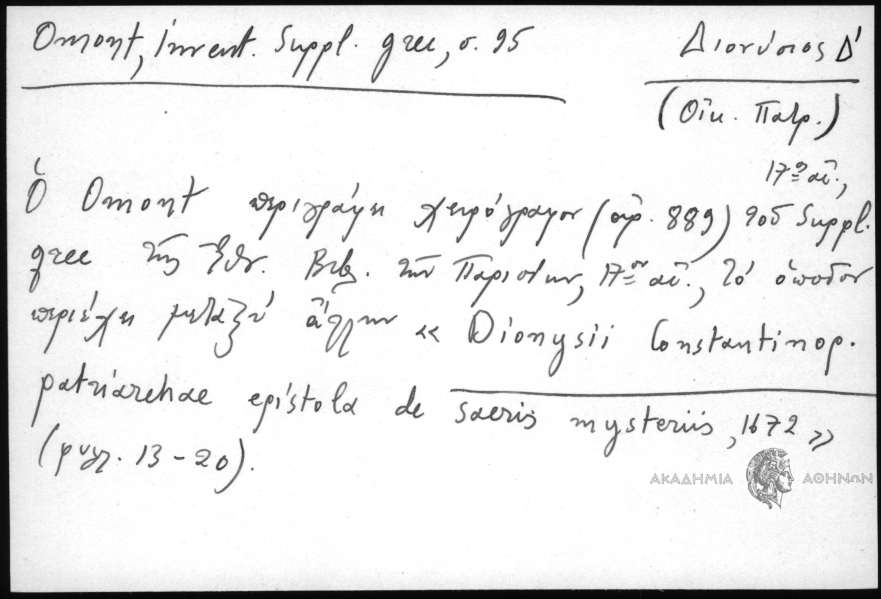 Omont, Invent. Suppl. grec, σ. 95
Διονύσιος Δ'
(Οἰκ. Πατρ.)
17ος αἰ.,
Ὁ Omont περιγράφει χειρόγραφον (ἀρ. 889) τοῦ Suppl.
grec τῆς Ἐθν. Βιβ. τῶν Παρισίων, 17ου αἰ., τό ὁποῖον
περιέχει μεταξύ ἄλλων « Dionysii Constantinop.
patriarchae epistola de sacris mysteriis, 1672 »
(φυλ. 13 - 20).
ΑΚΑΔΗΜΙΑ ΑΘΗΝΩΝ